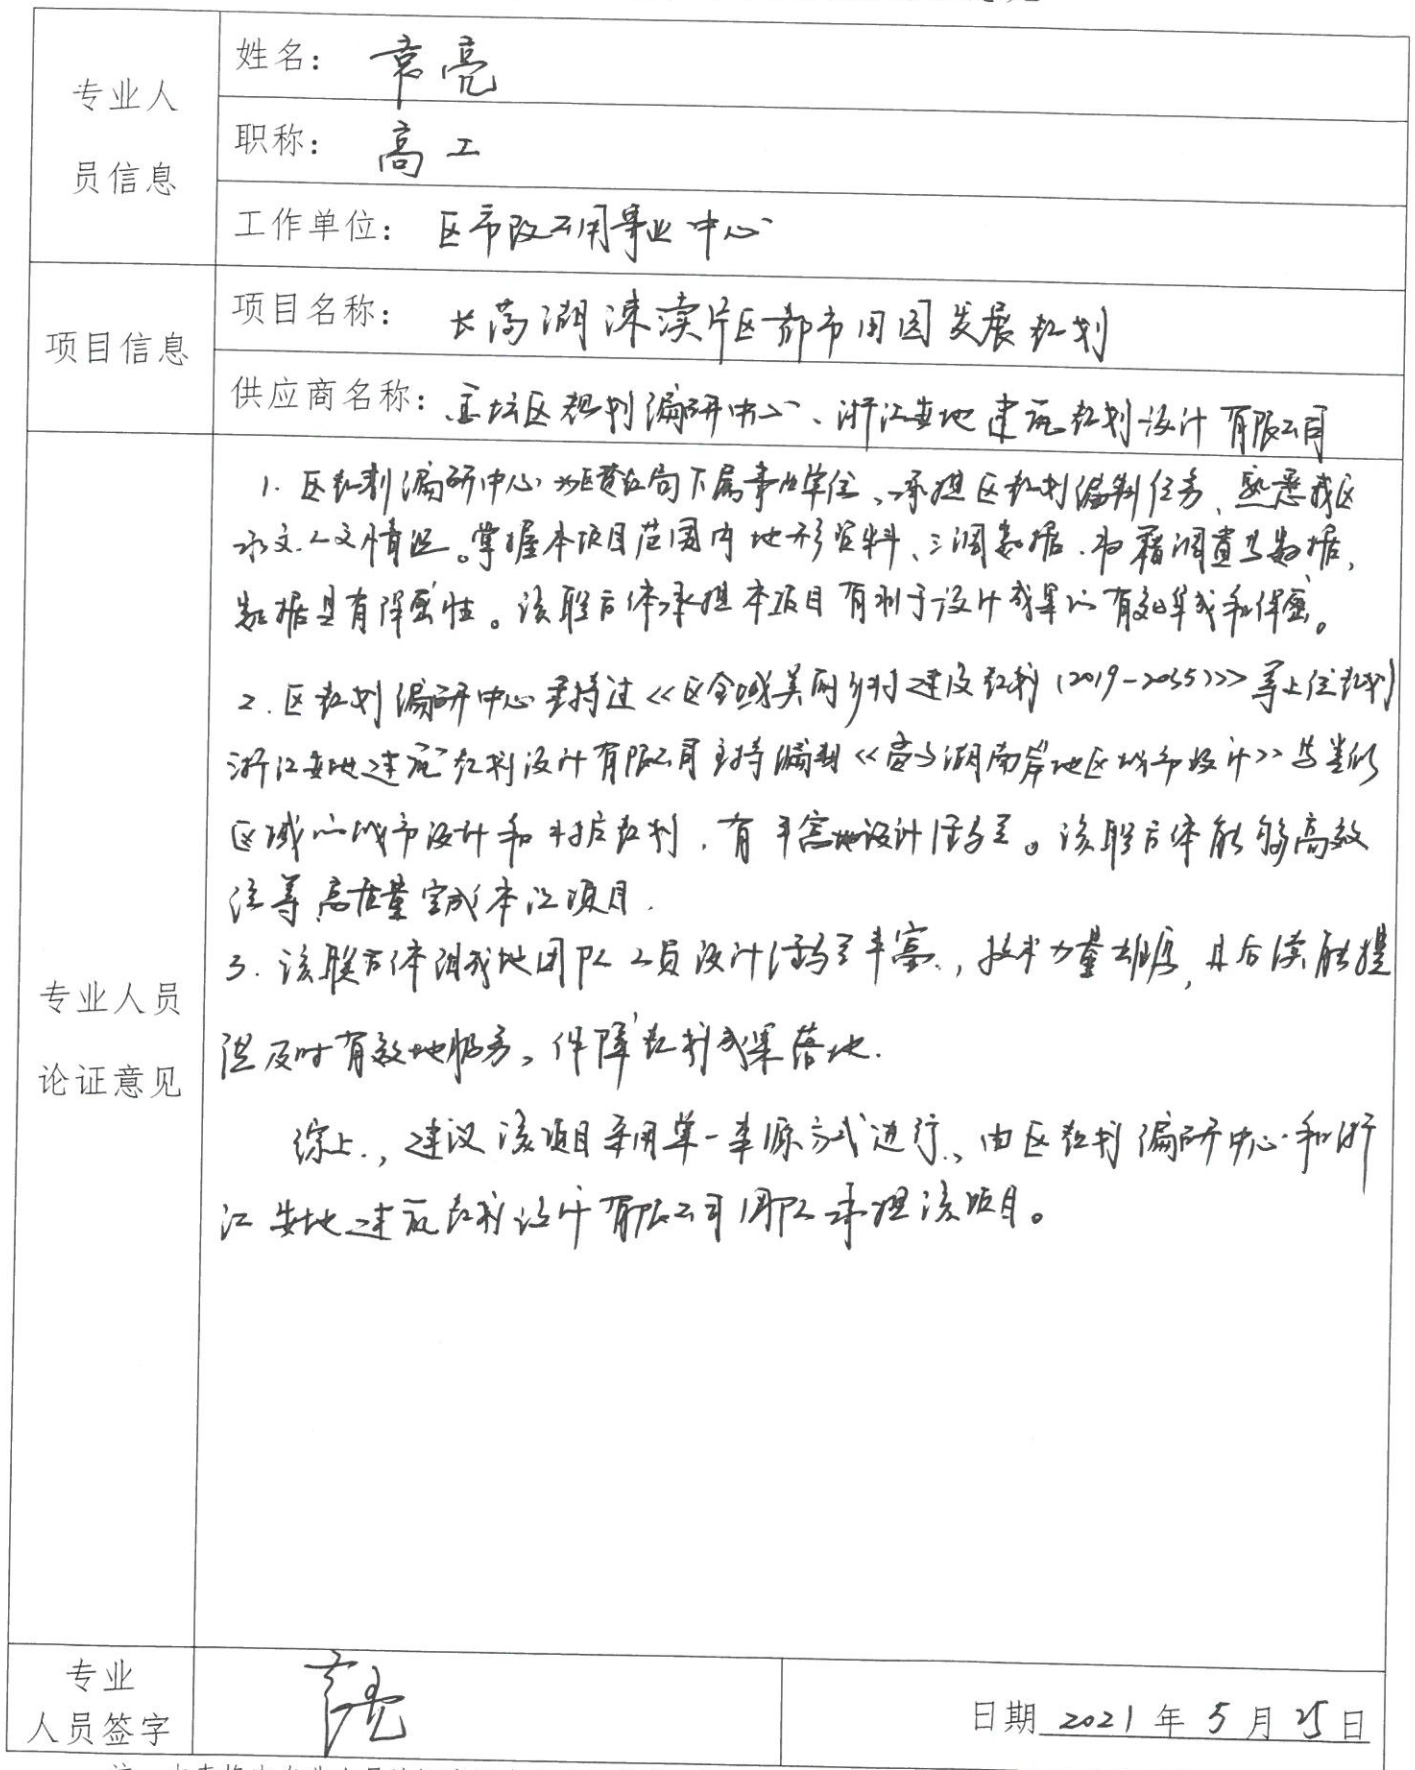 专业人
员信息
姓名： 袁亮
职称： 高工
工作单位： 区市政公用事业中心
项目信息
项目名称： 长荡湖涑渎片区都市田园发展规划
供应商名称： 金坛区规划编研中心、浙江安地建筑规划设计有限公司
专业人员
论证意见
1. 区规划编研中心为区资规局下属事业单位、承担区规划编制任务、熟悉我区
水文、人文情况。掌握本项目范围内地形资料、三调数据、地籍调查等数据，
数据具有保密性。该联合体承担本项目有利于设计成果的有效集成和保密。
2. 区规划编研中心主持过《区全域美丽乡村建设规划(2019-2035)》等上位规划
浙江安地建筑规划设计有限公司主持编制《 湖南岸地区城市设计》等类似
区域的城市设计和 规划，有丰富地设计经验。该联合体能够高效
高质量完成本次项目.
3. 该联合体 团队人员设计经验丰富，技术力量雄厚，且后续能提
供及时有效地服务，保障规划成果落地.
综上，建议该项目采用单一来源方式进行，由区规划编研中心和浙
江安地建筑规划设计有限公司团队承担该项目。
专业
人员签字
袁亮
日期 2021 年 5 月 25 日